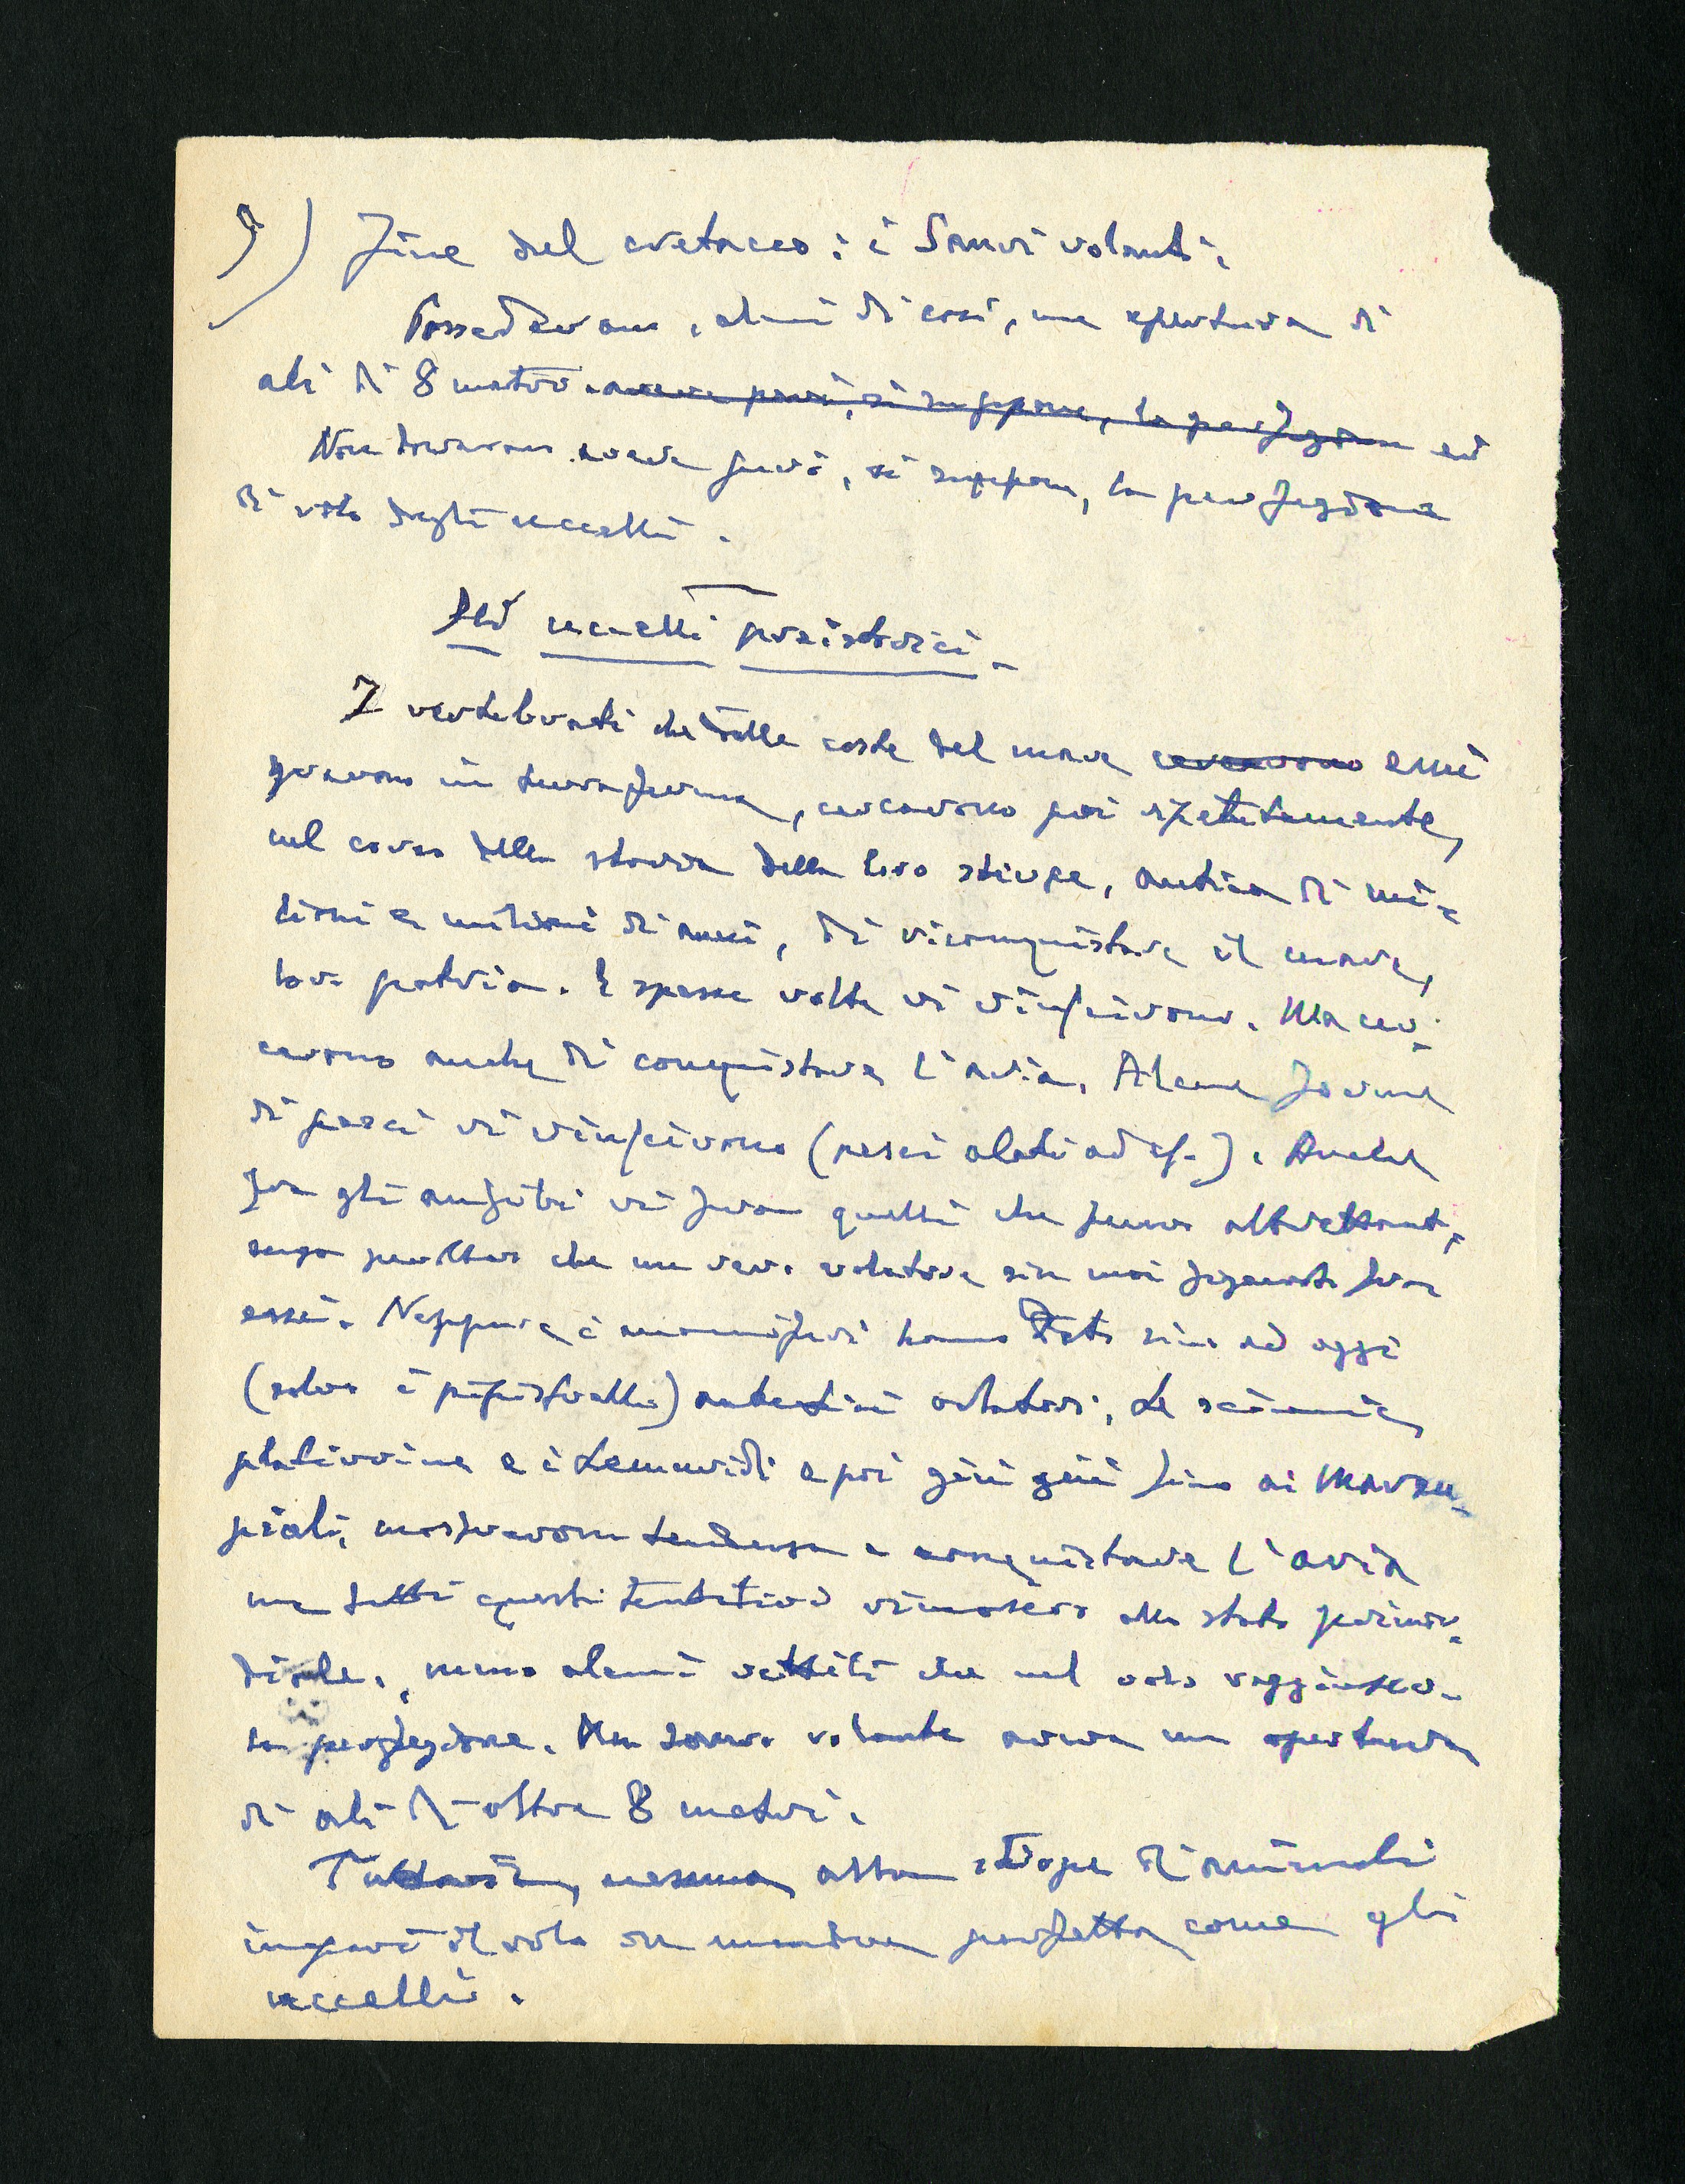 9) Fine del cretaceo: i Sauri volanti.
Possedevano, alcuni di essi, una apertura di
ali di 8 metri. aveva però, si suppone, la perfezione ed
Non dovevano avere però, si suppone, la perfezione
di volo degli uccelli.
Uccelli preistorici.
I vertebrati che dalle coste del mare cercarono emi
grarono in terraferma, cercarono poi ripetutamente,
nel corso della storia della loro stirpe, antica di mi-
lioni e milioni di anni, di riconquistare il mare,
loro patria. E spesse volte vi riuscirono. Ma cer-
carono anche di conquistare l'aria. Alcune forme
di pesci vi riuscirono (pesci alati ad es.). Anche
fra gli anfibi vi furon quelli che fecero altrettanto,
senza peraltro che un vero volatore sia mai figurato fra
essi. Neppure i mammiferi hanno dato sino ad oggi
(salvo i pipistrelli) autentici volatori. Le scimmie
platirrine e i Lemuridi e poi giù giù fino ai Marsu-
piali, mostrarono tendenza a conquistare l'aria
ma tutti questi tentativi rimasero allo stato primor-
diale. meno alcuni rettili che nel volo raggiunsero
la perfezione. Un sauro volante aveva un apertura
di ali di oltre 8 metri.
Tuttavia, nessuna altra stirpe di animali
imparò il volo in maniera perfetta come gli
uccelli.